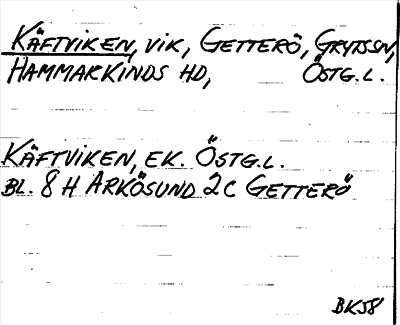 KÄFTVIKEN, VIK, GETTERÖ, GRYTSSN,
HAMMARKINDS HD, ÖSTG.L.
KÄFTVIKEN, EK. ÖSTG.L.
BL. 8 H ARKÖSUND 2C GETTERÖ
BK58